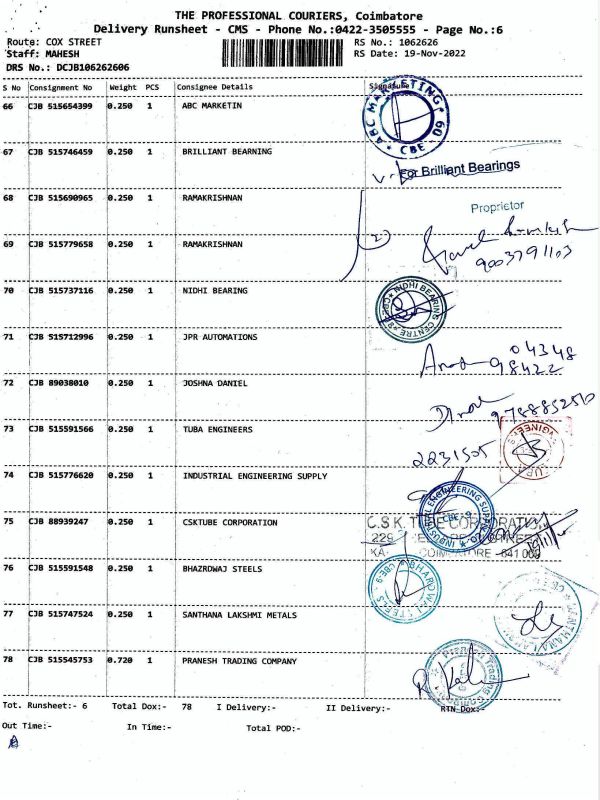 THE PROFESSIONAL COURIERS, Coimbatore
Delivery Runsheet - CMS - Phone No.:0422-3505555 - Page No.:6
Route: COX STREET
RS No.: 1062626
Staff: MAHESH
RS Date: 19-Nov-2022
DRS No.: DCJB106262606
S No Consignment No Weight PCS Consignee Details Signature
66 CJB 515654399 0.250 1 ABC MARKETIN
ABC MARKETING CBE
67 CJB 515746459 0.250 1 BRILLIANT BEARNING
For Brilliant Bearings
68 CJB 515690965 0.250 1 RAMAKRISHNAN
Proprietor
69 CJB 515779658 0.250 1 RAMAKRISHNAN
9003791103
70 CJB 515737116 0.250 1 NIDHI BEARING
NIDHI BEARING CENTRE
71 CJB 515712996 0.250 1 JPR AUTOMATIONS
04348
98422
72 CJB 89038010 0.250 1 JOSHNA DANIEL
73 CJB 515591566 0.250 1 TUBA ENGINEERS
2231505
74 CJB 515776620 0.250 1 INDUSTRIAL ENGINEERING SUPPLY
75 CJB 88939247 0.250 1 CSKTUBE CORPORATION
C.S.K.
76 CJB 515591548 0.250 1 BHAZRDWAJ STEELS
77 CJB 515747524 0.250 1 SANTHANA LAKSHMI METALS
78 CJB 515545753 0.720 1 PRANESH TRADING COMPANY
Tot. Runsheet:- 6 Total Dox:- 78 I Delivery:- II Delivery:- RTN Dox:-
Out Time:- In Time:- Total POD:-